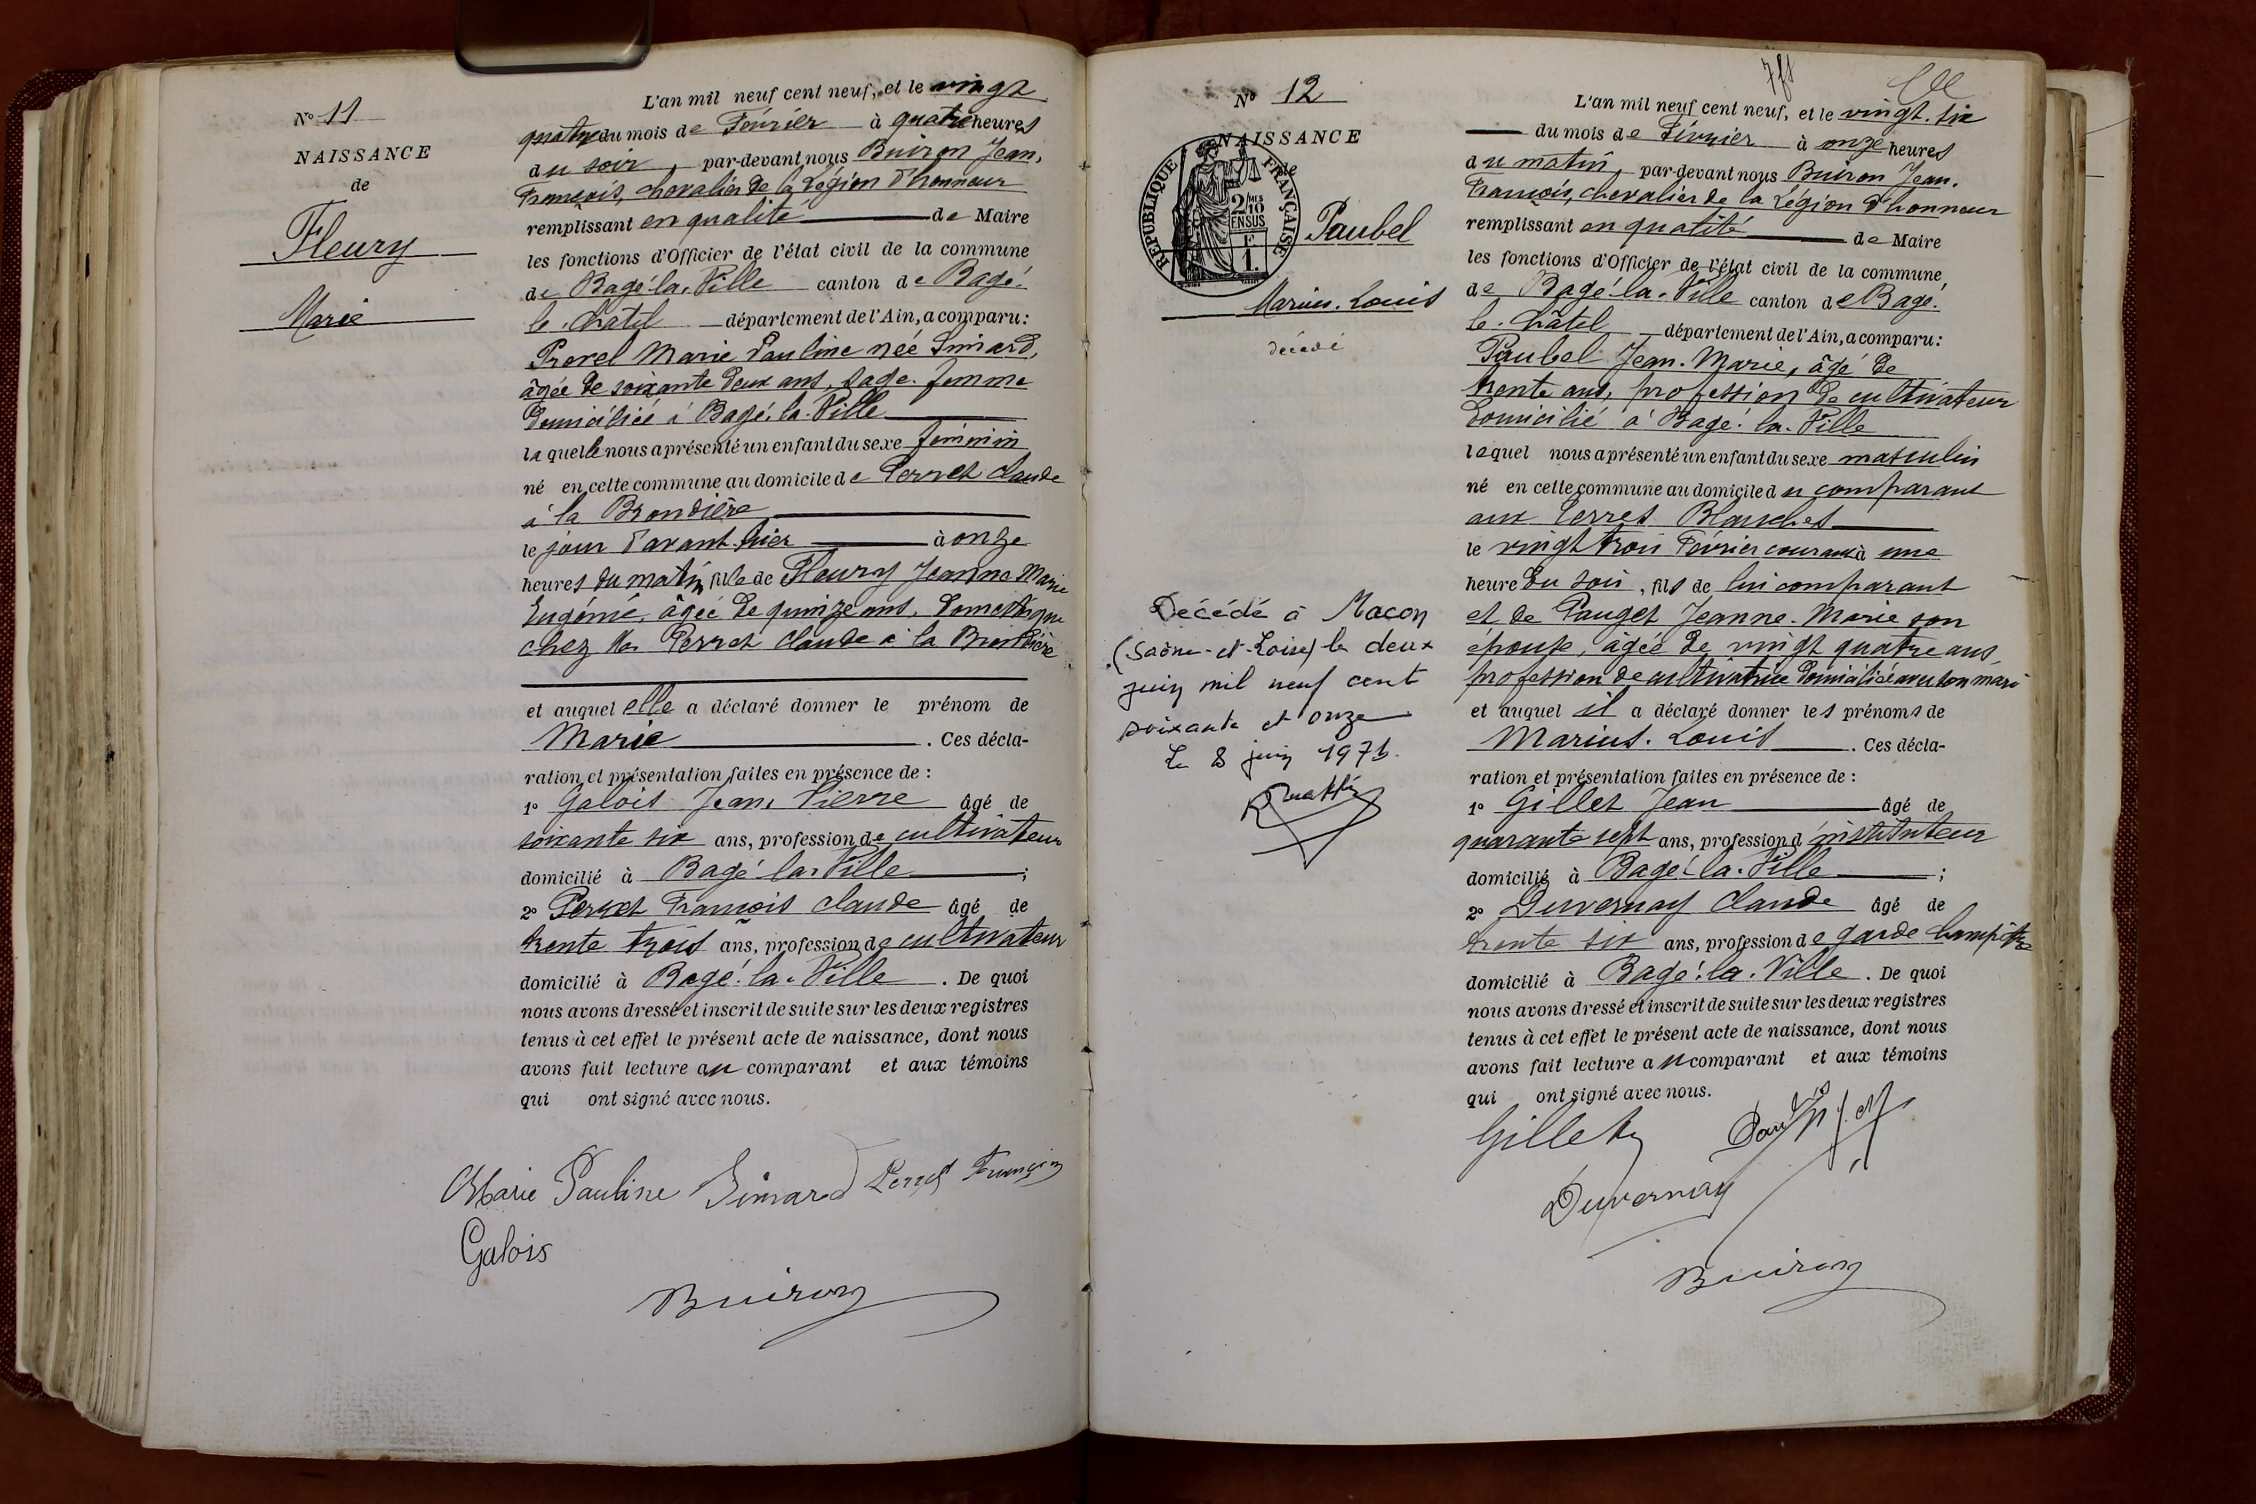 Nº 11
NAISSANCE
de
Fleury
Marie
L'an mil neuf cent neuf, et le vingt
quatre du mois de Février à quatre heures
du soir, par-devant nous Buiron Jean,
François, chevalier de la Légion d'honneur
remplissant en qualité de Maire
les fonctions d'Officier de l'état civil de la commune
de Bagé-la-Ville canton de Bagé-
le-Chatel département de l'Ain, a comparu:
Marie Pauline née Simard,
âgée de soixante deux ans, sage-femme
domiciliée à Bagé-la-Ville
laquelle nous a présenté un enfant du sexe féminin
né en cette commune au domicile de Perret Claude
à la Brondière
le jour d'avant hier à onze
heures du matin, fille de Fleury Jeanne Marie
Eugénie, âgée de quinze ans, domestique
chez Mr Perret Claude à la Brondière
et auquel elle a déclaré donner le prénom de
Marie. Ces décla-
ration et présentation faites en présence de :
1º Galois Jean, Pierre âgé de
soixante six ans, profession de cultivateur
domicilié à Bagé-la-Ville ;
2º Perret François Claude âgé de
trente trois ans, profession de cultivateur
domicilié à Bagé-la-Ville. De quoi
nous avons dressé et inscrit de suite sur les deux registres
tenus à cet effet le présent acte de naissance, dont nous
avons fait lecture au comparant et aux témoins
qui ont signé avec nous.
Marie Pauline Simard Perret François
Galois
Buiron
Nº 12
NAISSANCE
de
RÉPUBLIQUE FRANÇAISE
2/10
EN SUS
1 F.
Paubel
Marius. Louis
décédé
Décédé à Macon
(Saône-et-Loire) le deux
juin mil neuf cent
soixante et onze
Le 8 juin 1971.
L'an mil neuf cent neuf, et le vingt-six
du mois de Février à onze heures
du matin, par-devant nous Buiron Jean-
François, chevalier de la Légion d'honneur
remplissant en qualité de Maire
les fonctions d'Officier de l'état civil de la commune,
de Bagé-la-Ville canton de Bagé-
le-Châtel département de l'Ain, a comparu:
Paubel Jean-Marie, âgé de
trente ans, profession de cultivateur
domicilié à Bagé-la-Ville
lequel nous a présenté un enfant du sexe masculin
né en cette commune au domicile du comparant
aux Terres Blanches
le vingt trois Février courant à une
heure du soir, fils de lui comparant
et de Pauget Jeanne-Marie son
épouse, âgée de vingt quatre ans,
profession de cultivatrice domiciliée avec son mari
et auquel il a déclaré donner les prénoms de
Marius. Louis. Ces décla-
ration et présentation faites en présence de :
1º Gillet Jean âgé de
quarante sept ans, profession d'instituteur
domicilié à Bagé-la-Ville ;
2º Duvernay Claude âgé de
trente six ans, profession de garde champêtre
domicilié à Bagé-la-Ville. De quoi
nous avons dressé et inscrit de suite sur les deux registres
tenus à cet effet le présent acte de naissance, dont nous
avons fait lecture au comparant et aux témoins
qui ont signé avec nous.
Gillet
Duvernay
Buiron